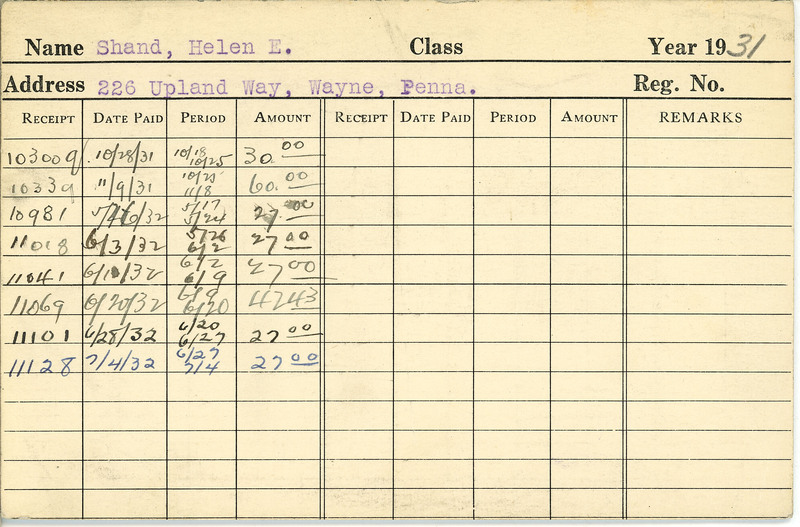 Name Shand, Helen E. Class Year 1931
Address 226 Upland Way, Wayne, Penna. Reg. No.
RECEIPT DATE PAID PERIOD AMOUNT RECEIPT DATE PAID PERIOD AMOUNT REMARKS
10300g 10/28/31 10/18 10/25 30.00
10339 11/9/31 10/25 11/8 60.00
10981 5/26/32 5/17 5/24 27.00
11018 6/3/32 5/26 6/2 27.00
11041 6/10/32 6/2 6/9 27.00
11069 6/20/32 6/9 6/20 4243
11101 6/28/32 6/20 6/27 27.00
11128 7/4/32 6/27 7/4 27.00